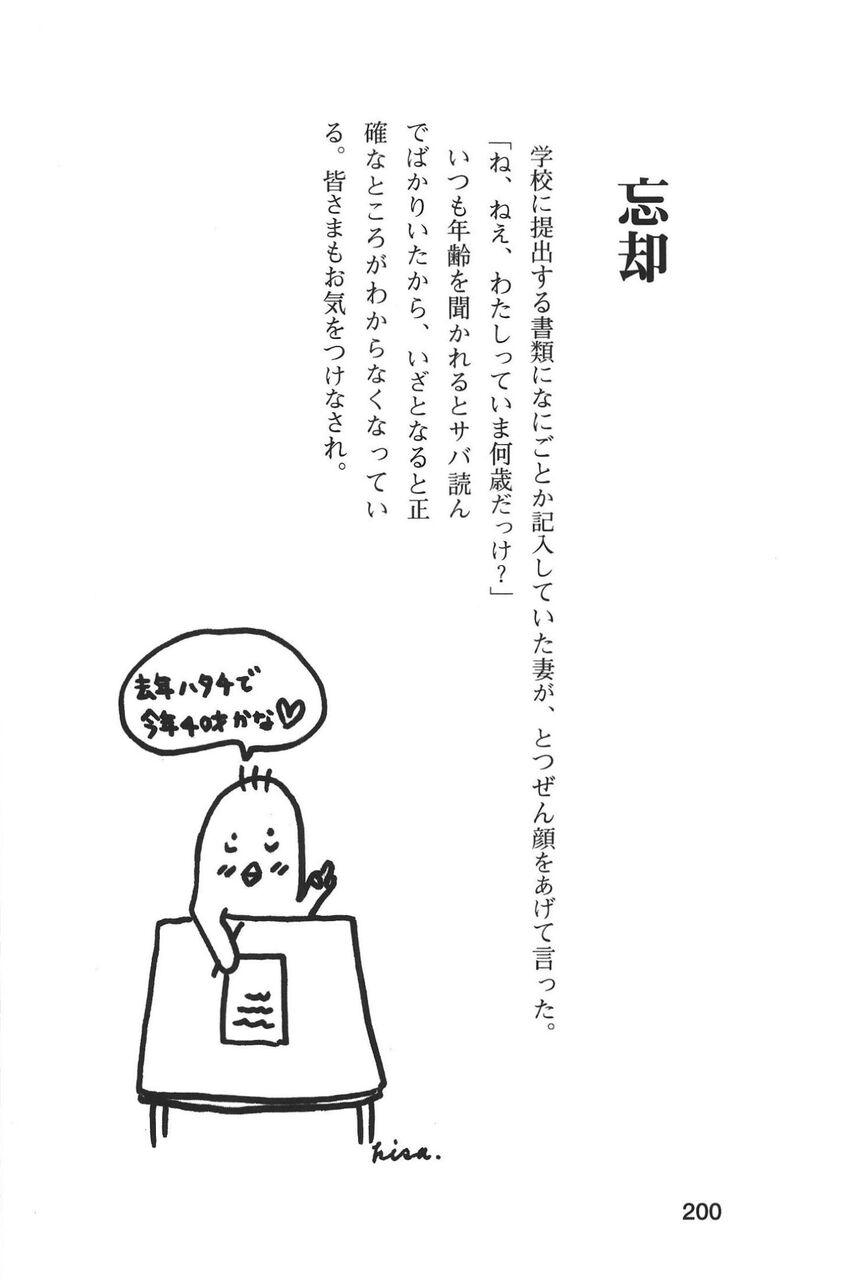 忘却
学校に提出する書類になにごとか記入していた妻が、とつぜん顔をあげて言った。
「ね、ねえ、わたしっていま何歳だっけ？」
いつも年齢を聞かれるとサバ読ん
でばかりいたから、いざとなると正
確なところがわからなくなってい
る。皆さまもお気をつけなされ。
去年ハタチで
今年40才かな♡
hisa.
200